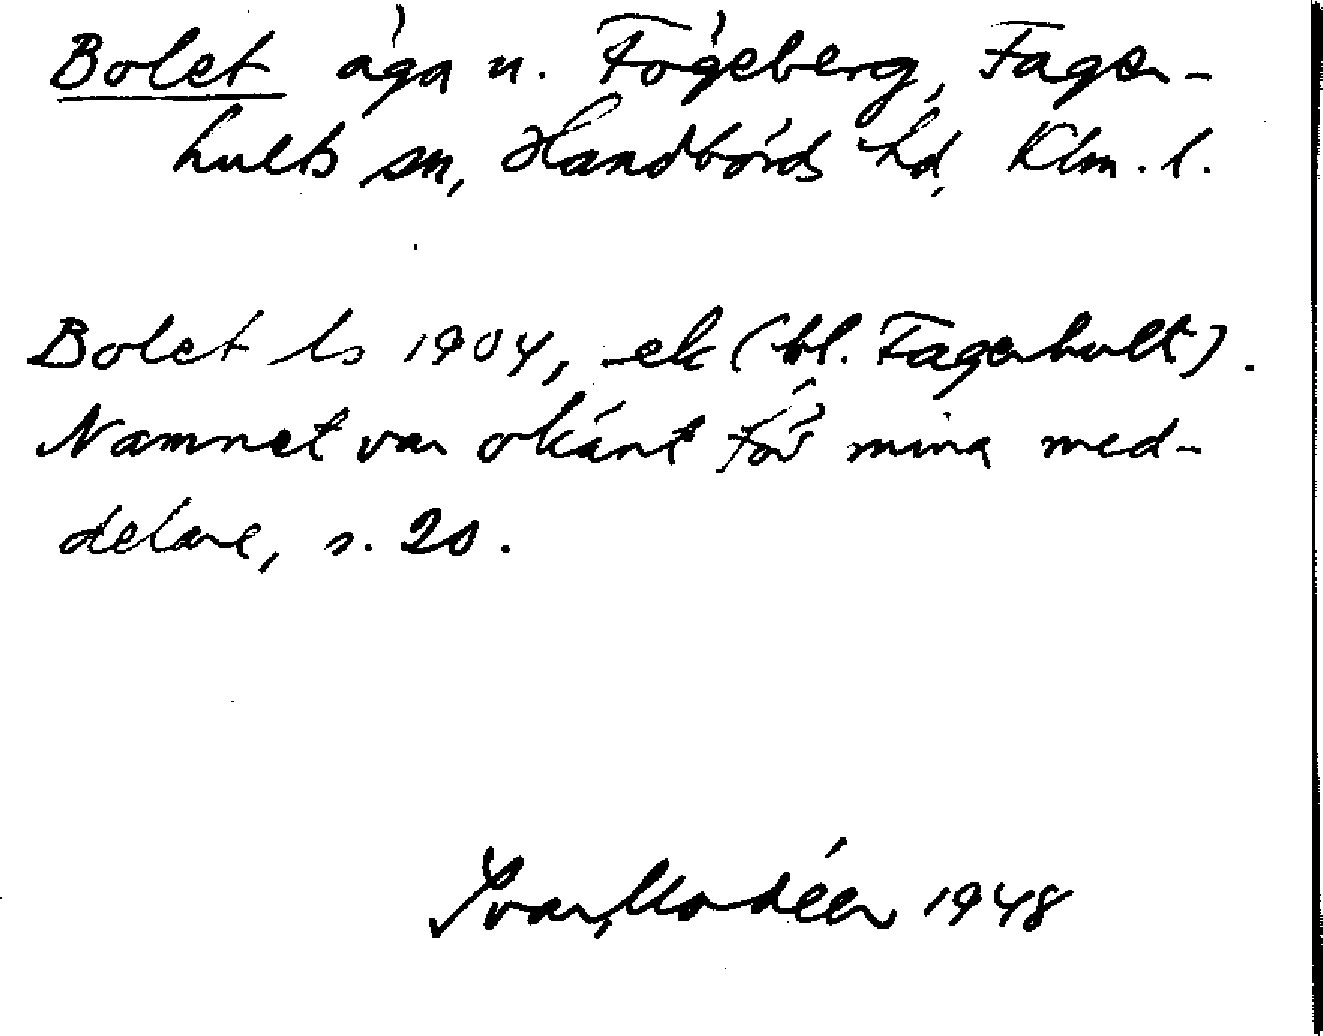 Bolet äga u. Fögeberg, Fager-
hults sn, Handbörds hd, Klm. l.
Bolet ls 1904, ek (bl. Fagerhult).
Namnet var okänt för mina med-
delare, s. 20.
Ivar Modéer 1948